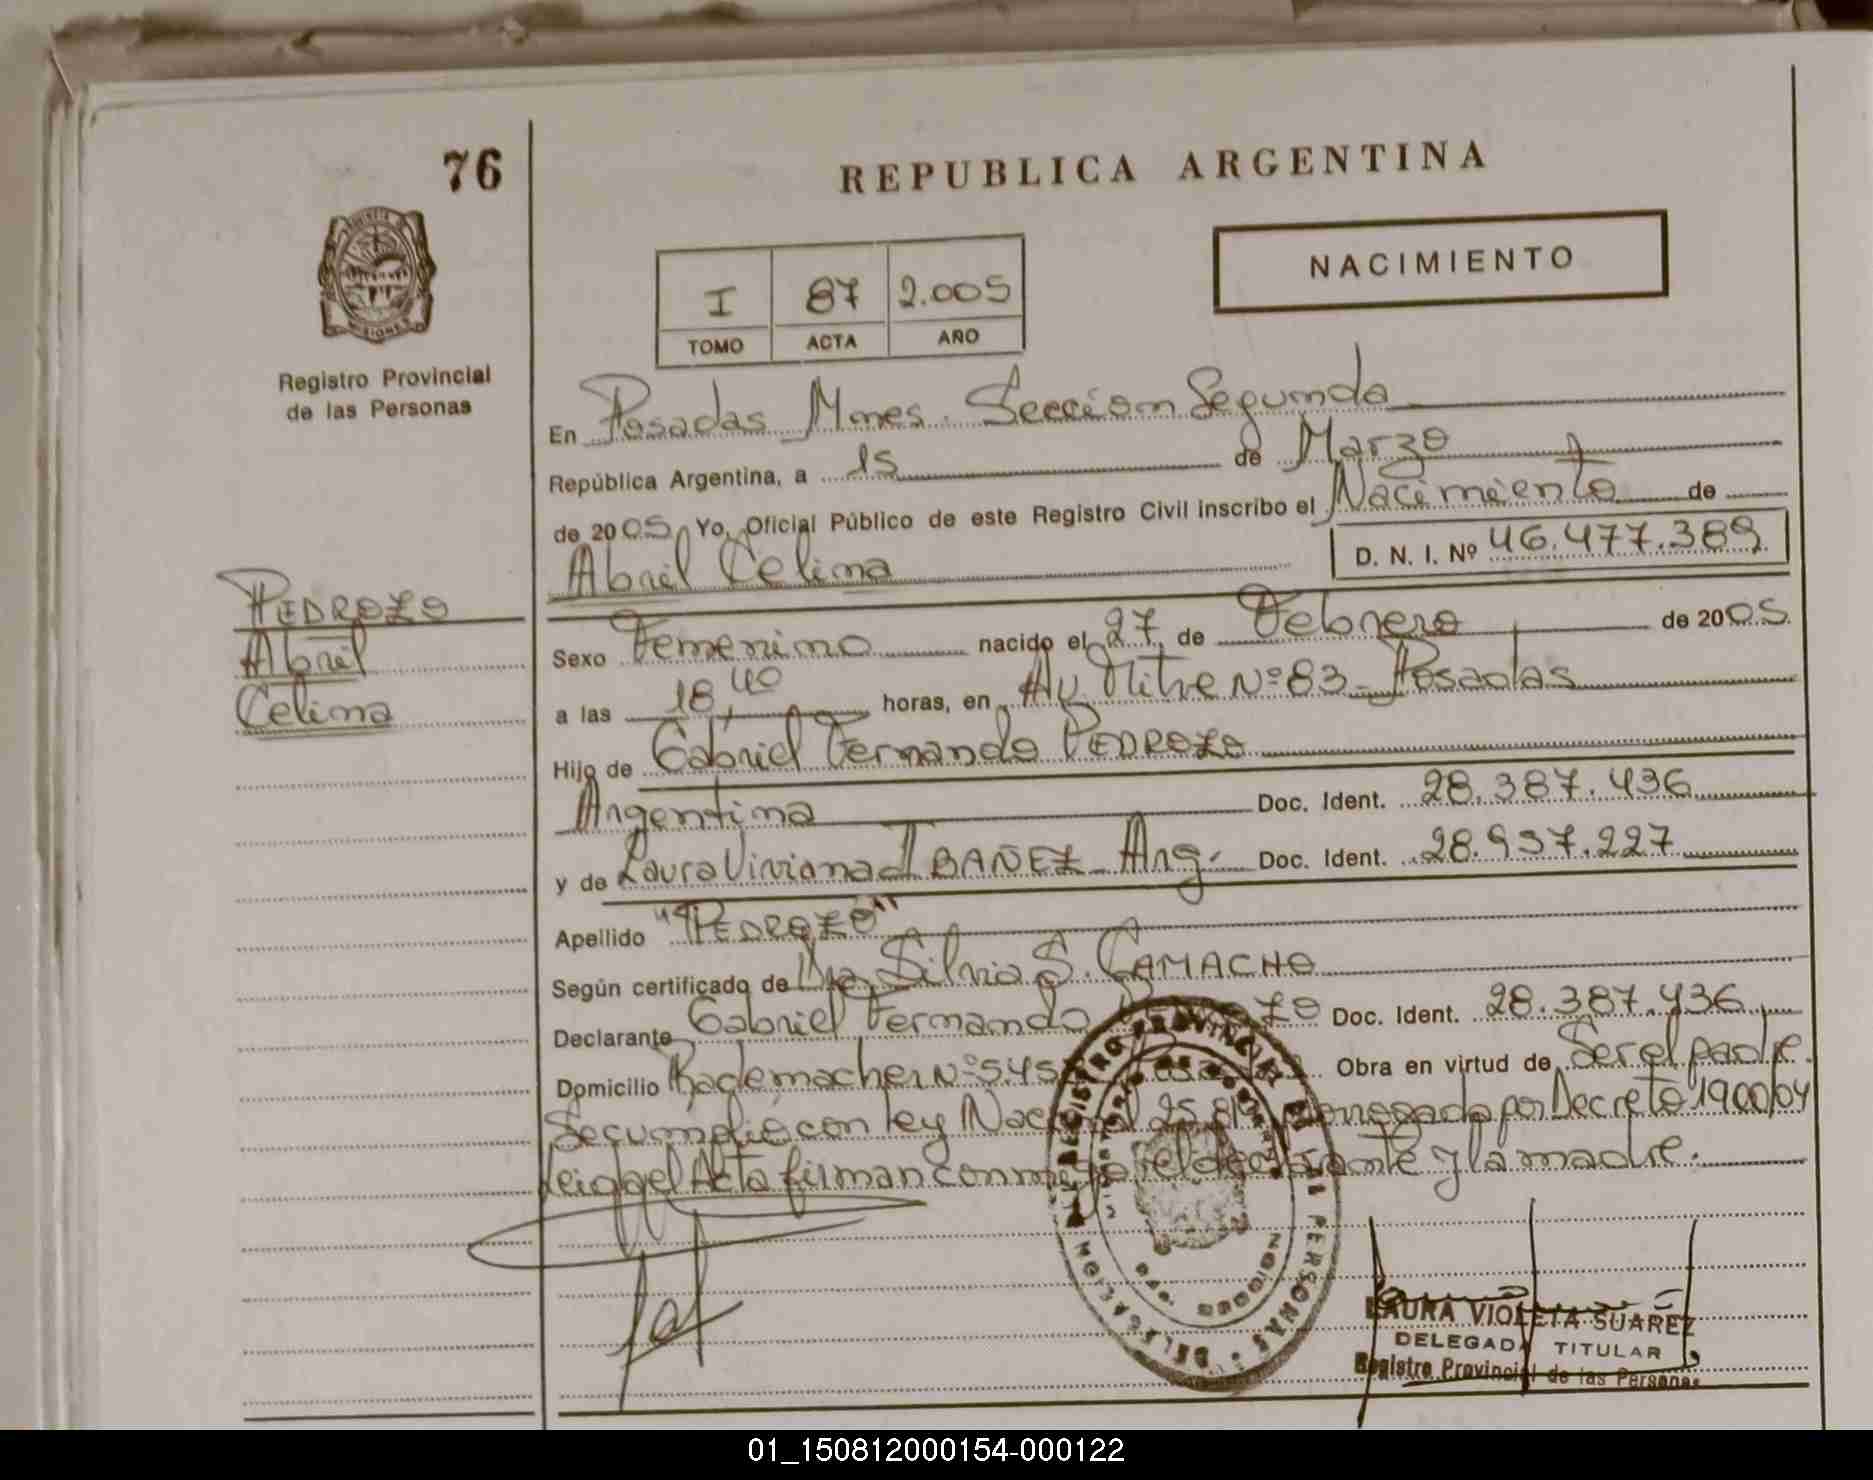 76
REPUBLICA ARGENTINA
NACIMIENTO
I 87 2.005
TOMO ACTA AÑO
MISIONES
Registro Provincial
de las Personas
En Posadas Mnes. Seccion Segunda
República Argentina, a 15 de Marzo
de 2005, Yo, Oficial Público de este Registro Civil inscribo el Nacimiento de
Abril Celina
D. N. I. Nº 46.477.389
PEDROZO
Abril
Celina
Sexo Femenino nacido el 27 de Febrero de 2005
a las 18,40 horas, en Av Mitre Nº 83 - Posadas
Hijo de Gabriel Fernando PEDROZO
Argentina Doc. Ident. 28.387.436
y de Laura Viviana IBAÑEZ - Arg. Doc. Ident. 28.937.227
Apellido "PEDROZO"
Según certificado de Dra. Silvia S. CAMACHO
Declarante Gabriel Fernando ZO Doc. Ident. 28.387.436
Domicilio Rademacher Nº 545 Obra en virtud de Ser el padre.
Se cumplió con ley Nacional por Decreto 1900/04
Leida el Acta firman conmigo el declarante y la madre.
REGISTRO PROVINCIAL DE LAS PERSONAS
LAURA VIOLETA SUAREZ
DELEGADA TITULAR
Registro Provincial de las Personas
01_150812000154-000122